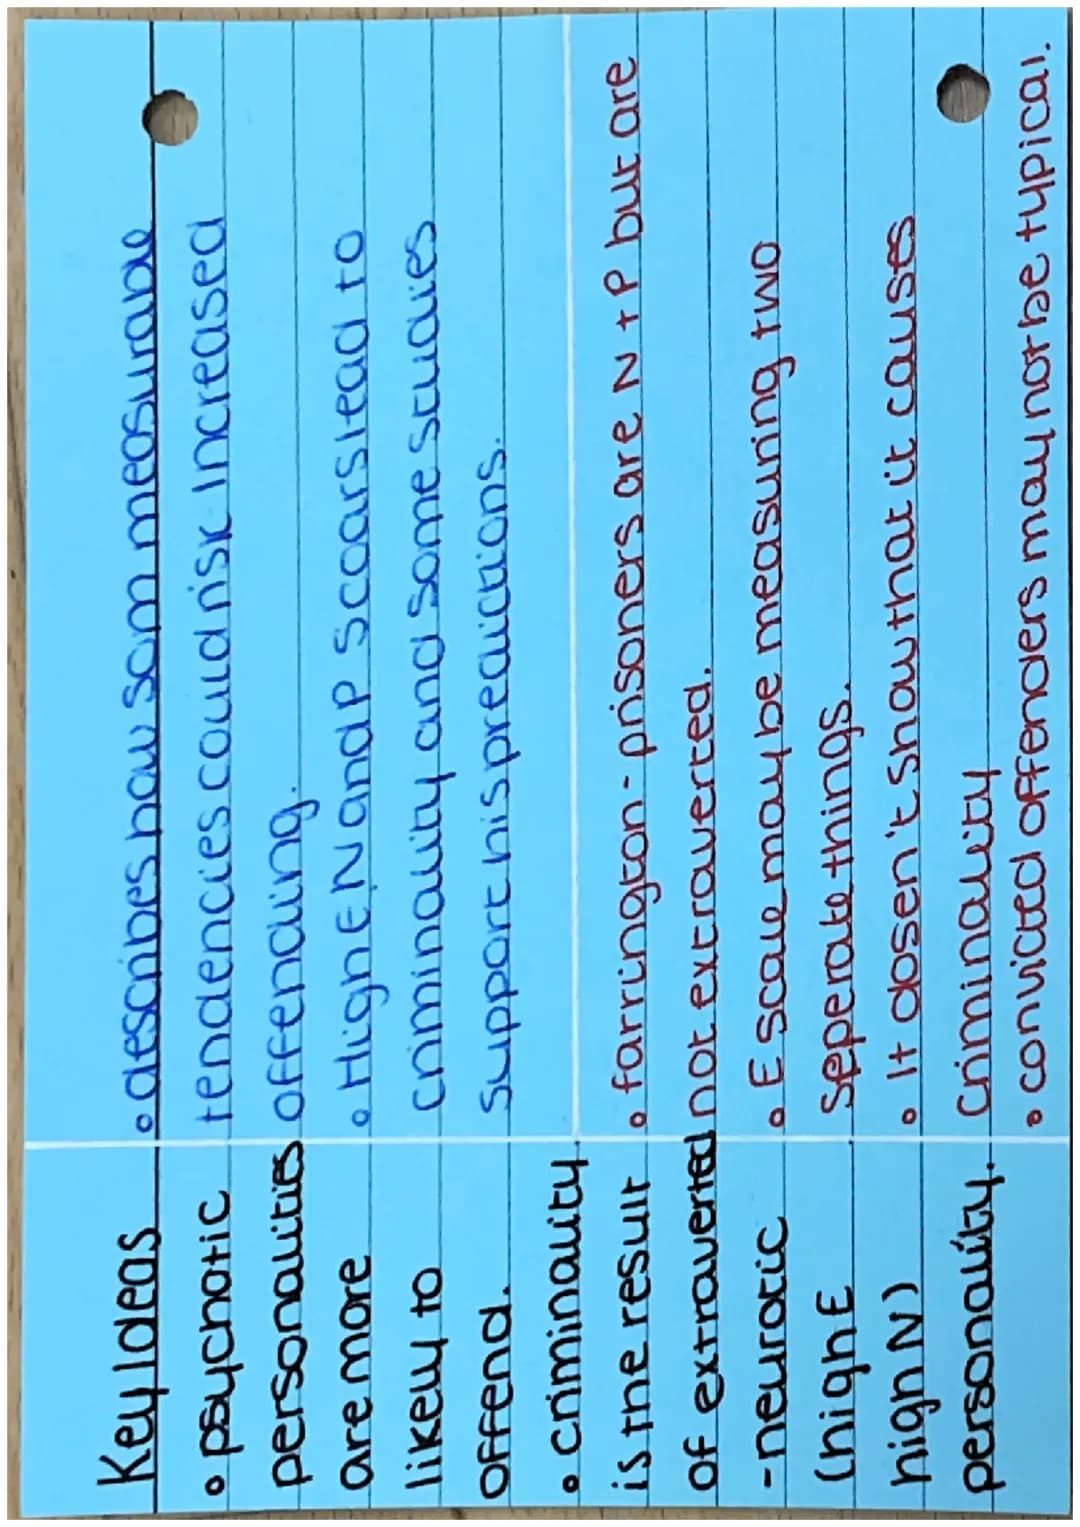 Key Ideas
• psychotic
personalities
are more
likely to
offend.
• criminality
is the result
of extraverted
-neurotic
(high E
high N)
personality.
• describes how som measurable
tendencies could risk increased
offending.
• High E N and P scoars lead to
criminality and some studies
support his predictions.
• farrington - prisoners are N + P but are
not extraverted.
• E scale may be measuring two
seperate things.
• It dosen't show that it causes
criminality
• convicted offenders may not be typical.